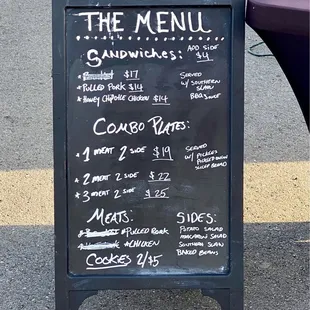 THE MENU
SANDWICHES: ADD SIDE $4
$17
* PULLED PORK $14
* HONEY CHIPOTLE CHICKEN $14
SERVED
W/ SOUTHERN
SLAW
BBQ SAUCE
COMBO PLATES:
* 1 MEAT 2 SIDE $19
* 2 MEAT 2 SIDE $22
* 3 MEAT 2 SIDE $25
SERVED
W/ PICKLES
PICKLED ONION
BREAD
MEATS:
* PULLED PORK
* CHICKEN
COOKIES 2/$5
SIDES:
POTATO SALAD
MACARONI SALAD
SOUTHERN SLAW
BAKED BEANS